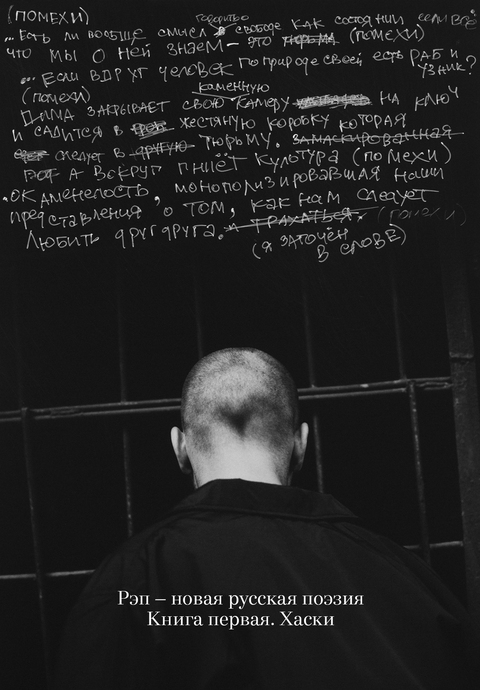 (ПОМЕХИ)
...Есть ли вообще смысл говорить о свободе как состоянии если всё
что мы о ней знаем – это тюрьма (ПОМЕХИ)
... Если вдруг человек по природе своей есть раб и
узник?
(ПОМЕХИ)
каменную
Дима закрывает свою камеру на ключ
и садится в жестяную коробку которая
следует в другую тюрьму. замаскированная
А вокруг гниёт культура (ПОМЕХИ)
окаменелость, монополизировавшая наши
представления о том, как нам следует
любить друг друга. трахаться. (помехи)
(я заточён
в слове)
Рэп – новая русская поэзия
Книга первая. Хаски